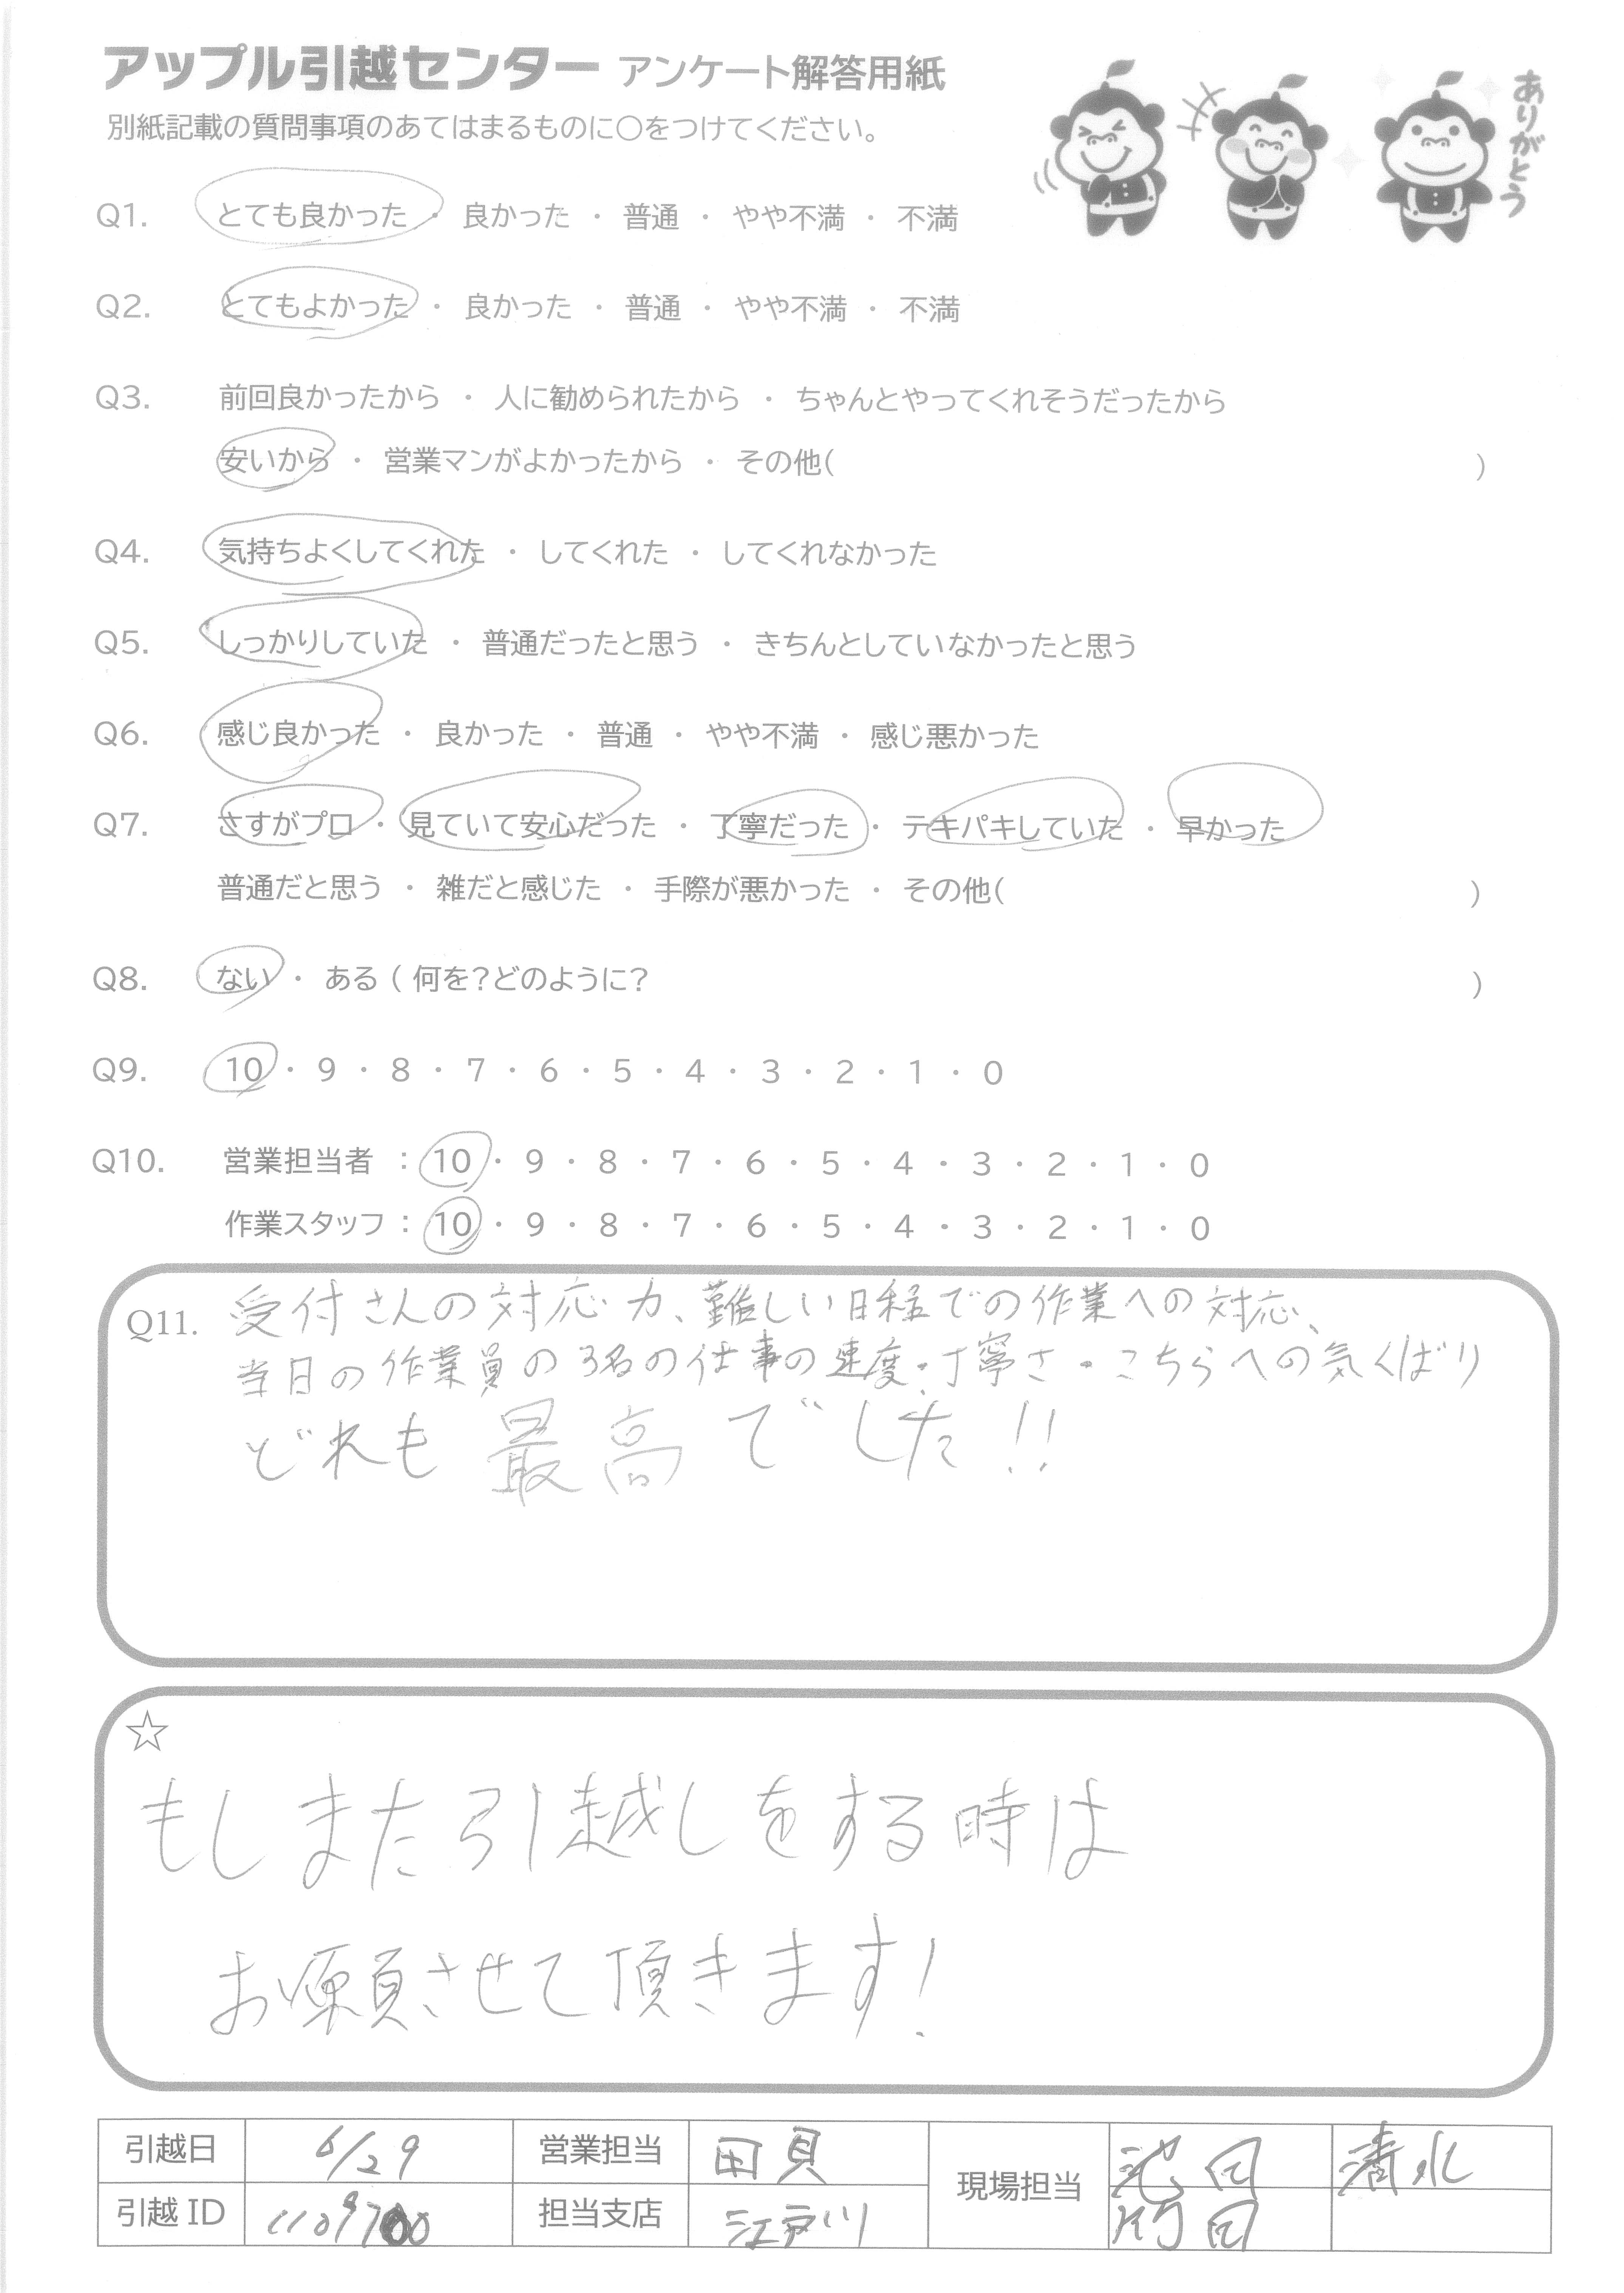 アップル引越センター アンケート解答用紙
別紙記載の質問事項のあてはまるものに〇をつけてください。
ありがとう
Q1. とても良かった ・ 良かった ・ 普通 ・ やや不満 ・ 不満
Q2. とてもよかった ・ 良かった ・ 普通 ・ やや不満 ・ 不満
Q3. 前回良かったから ・ 人に勧められたから ・ ちゃんとやってくれそうだったから
安いから ・ 営業マンがよかったから ・ その他( )
Q4. 気持ちよくしてくれた ・ してくれた ・ してくれなかった
Q5. しっかりしていた ・ 普通だったと思う ・ きちんとしていなかったと思う
Q6. 感じ良かった ・ 良かった ・ 普通 ・ やや不満 ・ 感じ悪かった
Q7. さすがプロ ・ 見ていて安心だった ・ 丁寧だった ・ テキパキしていた ・ 早かった
普通だと思う ・ 雑だと感じた ・ 手際が悪かった ・ その他( )
Q8. ない ・ ある ( 何を?どのように? )
Q9. 10 ・ 9 ・ 8 ・ 7 ・ 6 ・ 5 ・ 4 ・ 3 ・ 2 ・ 1 ・ 0
Q10. 営業担当者 : 10 ・ 9 ・ 8 ・ 7 ・ 6 ・ 5 ・ 4 ・ 3 ・ 2 ・ 1 ・ 0
作業スタッフ : 10 ・ 9 ・ 8 ・ 7 ・ 6 ・ 5 ・ 4 ・ 3 ・ 2 ・ 1 ・ 0
Q11. 受付さんの対応力、難しい日程での作業への対応、
当日の作業員の3名の仕事の速度・丁寧さ・こちらへの気くばり
どれも最高でした!!
☆
もしまた引越しをする時は
お願いさせて頂きます!
引越日 6/29 営業担当 田貝 現場担当 池田 清水
引越ID 担当支店 江戸川 竹田